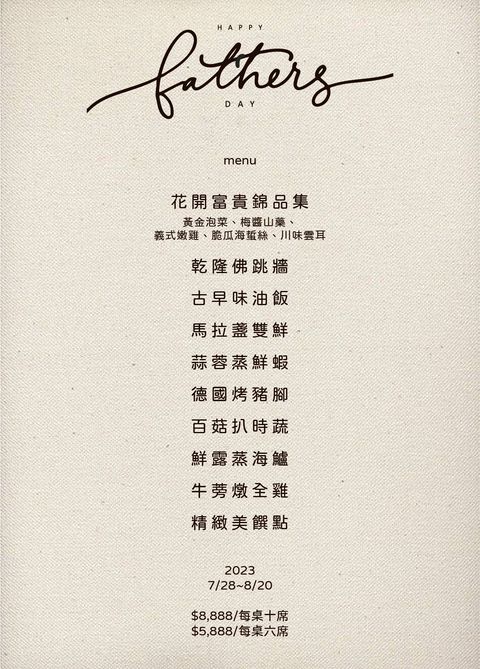 HAPPY
fathers
DAY
menu
花開富貴錦品集
黃金泡菜、梅醬山藥、
義式嫩雞、脆瓜海蜇絲、川味雲耳
乾隆佛跳牆
古早味油飯
馬拉盞雙鮮
蒜蓉蒸鮮蝦
德國烤豬腳
百菇扒時蔬
鮮露蒸海鱸
牛蒡燉全雞
精緻美饌點
2023
7/28~8/20
$8,888/每桌十席
$5,888/每桌六席